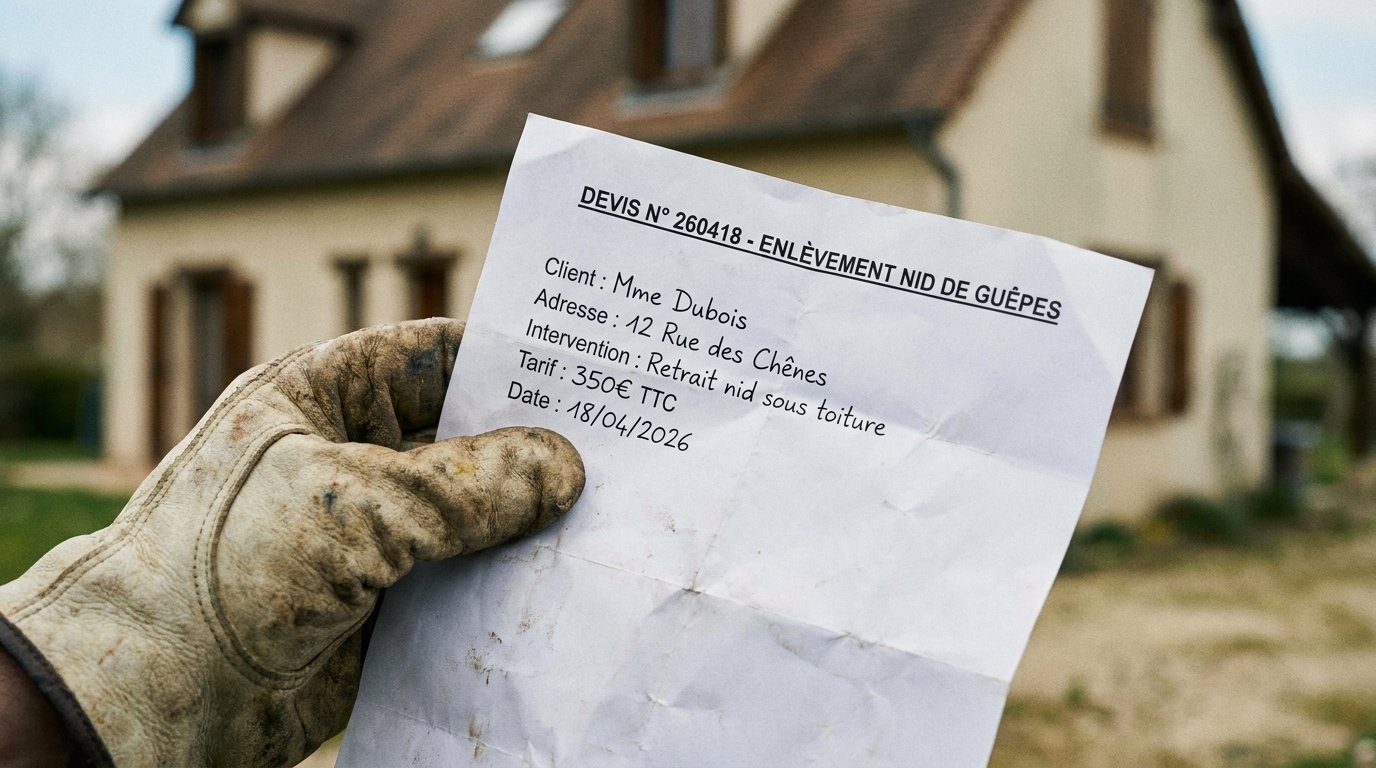 DEVIS N° 260418 - ENLÈVEMENT NID DE GUÊPES
Client : Mme Dubois
Adresse : 12 Rue des Chênes
Intervention : Retrait nid sous toiture
Tarif : 350€ TTC
Date : 18/04/2026